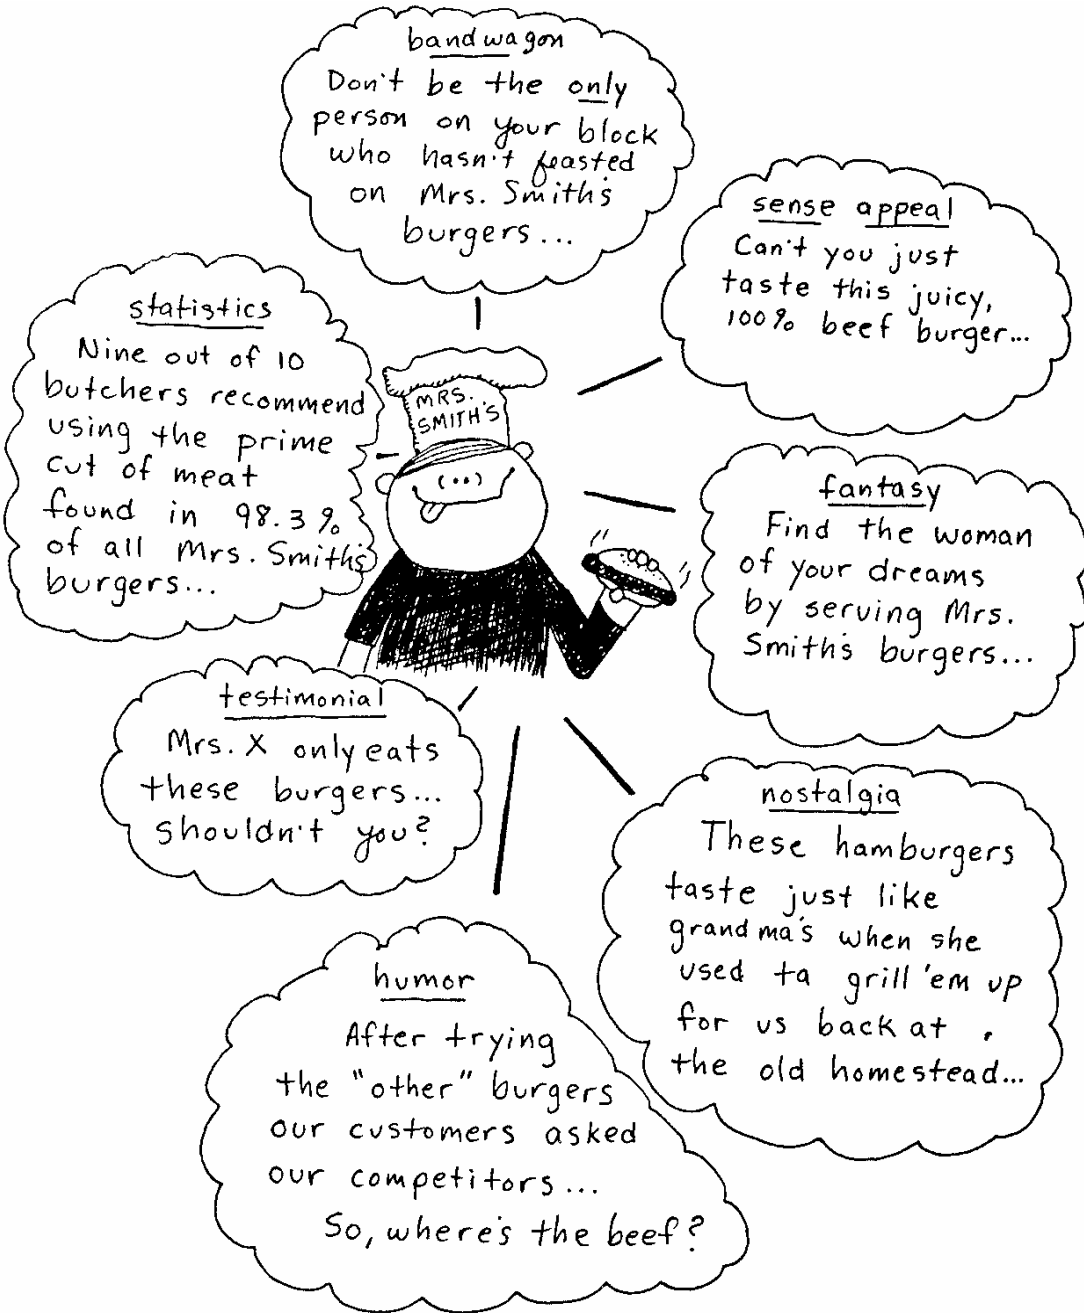 bandwagon
Don't be the only
person on your block
who hasn't feasted
on Mrs. Smith's
burgers...
sense appeal
Can't you just
taste this juicy,
100% beef burger...
statistics
Nine out of 10
butchers recommend
using the prime
cut of meat
found in 98.3%
of all Mrs. Smith's
burgers...
MRS.
SMITH'S
fantasy
Find the woman
of your dreams
by serving Mrs.
Smith's burgers...
testimonial
Mrs. X only eats
these burgers...
shouldn't you?
nostalgia
These hamburgers
taste just like
grandma's when she
used ta grill 'em up
for us back at
the old homestead...
humor
After trying
the "other" burgers
our customers asked
our competitors...
So, where's the beef?